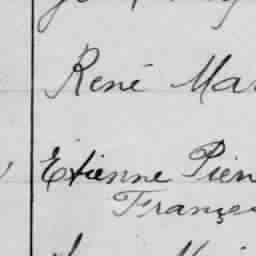 René Mar
Etienne Pier
Françoi